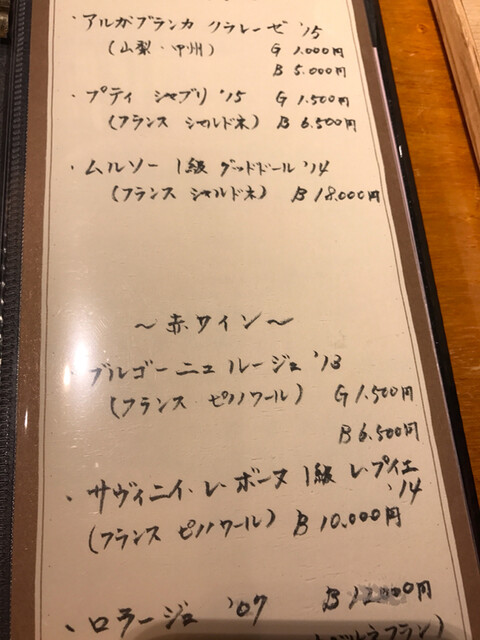 ・アルガブランカ クラレーゼ '15
(山梨・甲州) G 1.000円
B 5.000円
・プティ シャブリ '15 G 1.500円
(フランス シャルドネ) B 6.500円
・ムルソー 1級 グッドドール '14
(フランス シャルドネ) B 18.000円
～赤ワイン～
・ブルゴーニュ ルージュ '13
(フランス ピノノワール) G 1.500円
B 6.500円
・サヴィニイ・レ・ボーヌ 1級 レ・プイエ
'14
(フランス ピノノワール) B 10.000円
・ロラージュ '07 B 12.000円